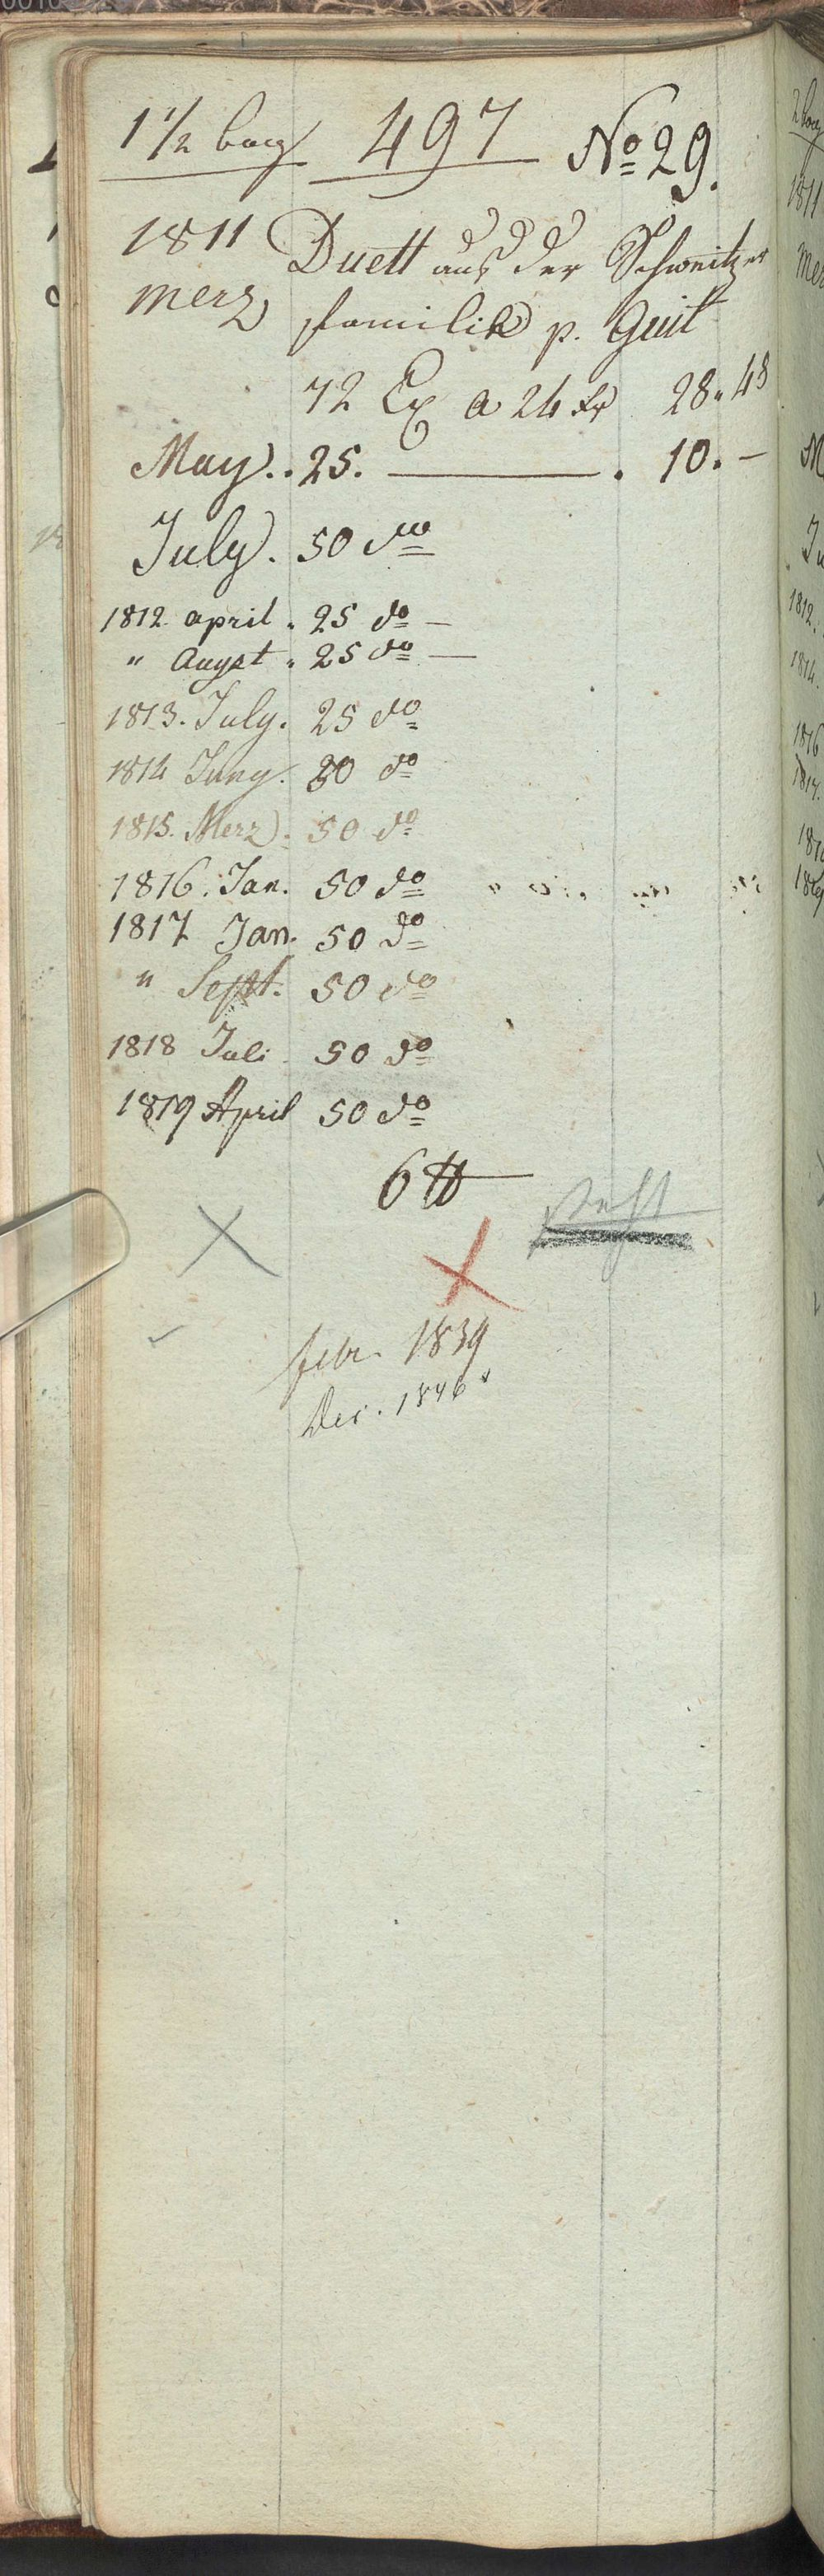 1 1/2 bog 497 No 29.
1811 Duett aus der Schweitzer
Merz familie p. Guit
72 Ex a 24 Xr 28 " 48
May . . 25. — . 10. —
July . 50 do
1812 april . 25 do —
" Augst . 25 do —
1813. July. 25 do
1814 Juny. 30 do
1815. Merz . 50 do
1816. Jan. 50 do
1817 Jan. 50 do
" Sept. 50 do
1818 Juli 50 do
1819 April 50 do
6 tt
febr. 1839
Dec. 1846